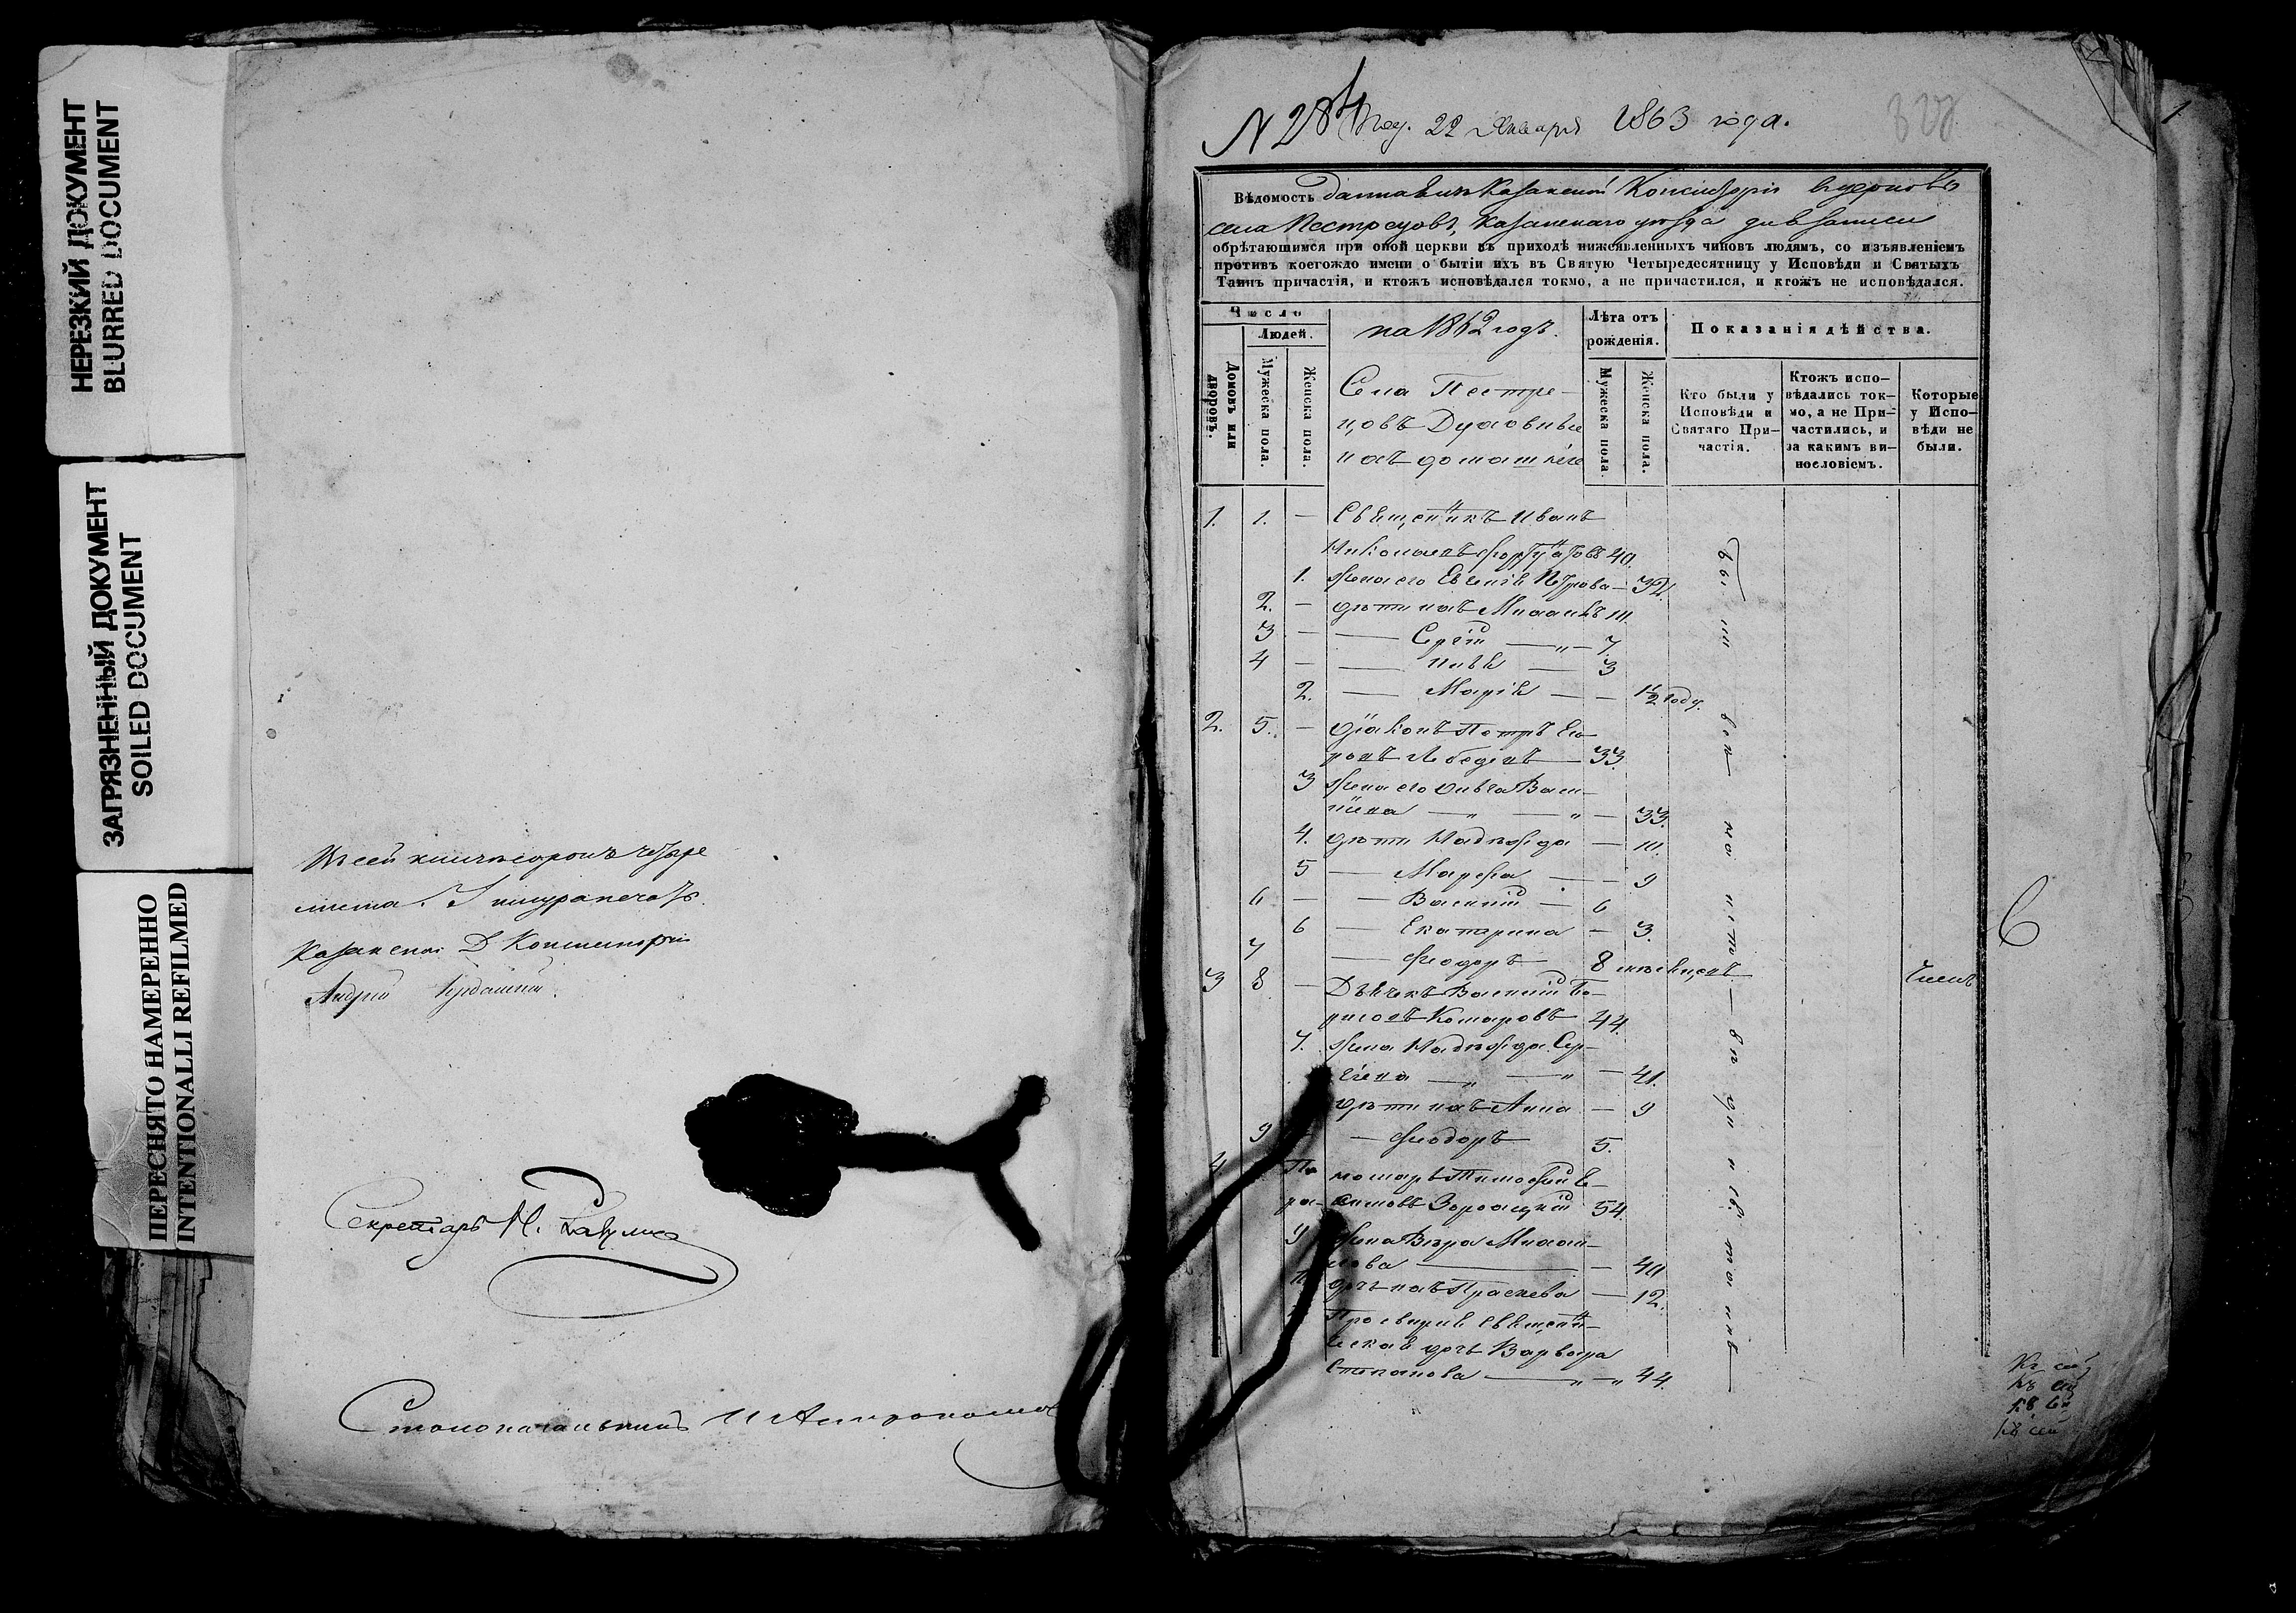 НЕРЕЗКИЙ ДОКУМЕНТ
BLURRED DOCUMENT
ЗАГРЯЗНЕННЫЙ ДОКУМЕНТ
SOILED DOCUMENT
ПЕРЕСНЯТО НАМЕРЕННО
INTENTIONALLI REFILMED
Въ сей книгѣ сорокъ четыре
листа.
Казанской Д Консисторіи
Андрей
Секретарь М.
Столоначальникъ И
N 28 Пол. 22 Января 1863 года.
1
Вѣдомость данная изъ Казанской Консисторіи въ церковь
села Пестрецовъ, Казанскаго уѣзда для записи
обрѣтающимся при оной церкви въ приходѣ нижеявленныхъ чиновъ людямъ, со изъявленіемъ
противъ коегождо имени о бытіи ихъ въ Святую Четыредесятницу у Исповѣди и Святыхъ
Таинъ причастія, и ктожъ исповѣдался токмо, а не причастился, и ктожъ не исповѣдался.
Число
Домовъ или дворовъ.
Людей.
Мужеска пола.
Женска пола.
на 1862 годъ.
Села Пестре-
цовъ Духовные
ихъ домашніе
Лѣта отъ рожденія.
Мужеска пола
Женска пола.
Показанія дѣйства.
Кто были у Исповѣди и Святаго При-частія.
Ктожъ испо-вѣдались ток-мо, а не При-частились, и за какимъ ви-нословіемъ.
Которые у Испо-вѣди не были.
1. 1. — Священникъ Иванъ
Николаевъ Фортунатовъ 40.
1. Жена его Евгенія Петрова — 32.
2. — Дѣти ихъ Михаилъ 10.
3 — — Сергій — „ — 7.
4 — — Илья — 3
2. — Марія — — 1½ году.
2. 5. — Діаконъ Петръ Его-
ровъ Лебедевъ — 33
3 Жена его Ольга Васи-
ліева — „ — „ — 33.
4. Дѣти Надежда — 10.
5 — Марфа — — 9
6 — — Василій — 6
6 — Екатерина — 3.
7 — Феодоръ 8 мѣсяцевъ
3 8 — Дьячекъ Василій Бо-
рисовъ Комаровъ 44.
7. Жена Надежда Сер-
гіева — „ — „ — 41.
Дѣти ихъ Анна — 9
9 — Феодоръ 5.
4. Пономарь Тимофей Ге-
расимовъ 54.
9 Жена Вѣра Михаи-
лова — — 40
дочь ихъ Праскева — 12.
Просвирня Священни-
ческая дочь Варвара
Степанова — „ — „ 44.
Были
6